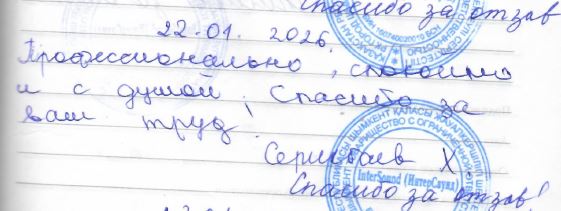 Спасибо за отзав
22.01.2026.
Профессионально, спокойно
и с душой! Спасибо за
ваш труд!
Сериктаев Х.
InterSound (ИнтерСаунд)
Спасибо за отзав!